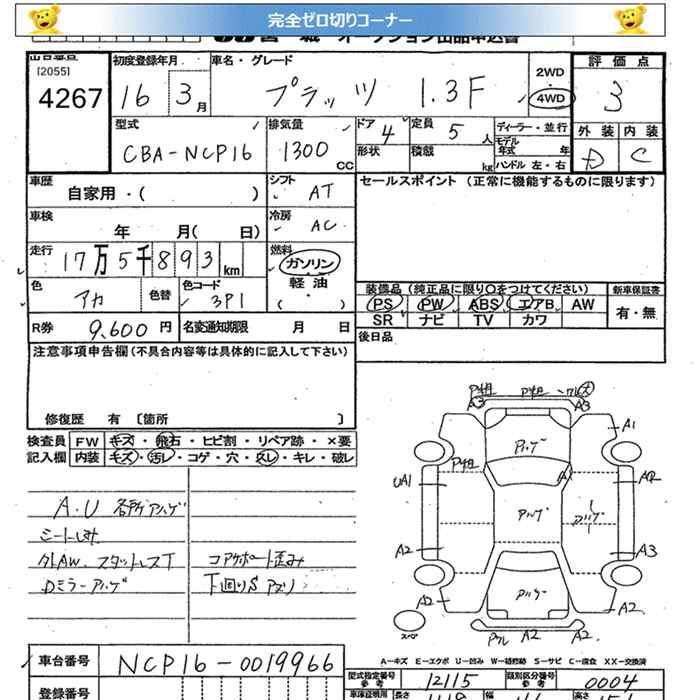 完全ゼロ切りコーナー
オークション出品申込書
出品番号 初度登録年月 車名・グレード 2WD 評価点
[2055]
4267 16 3月 プラッツ 1.3F 4WD 3
型式 排気量 ドア 4 定員 5人 ディーラー・並行 外装 内装
CBA-NCP16 1300 CC 形状 積載 kg モデル年式 年 D C
ハンドル 左・右
車歴 自家用・( ) シフト AT セールスポイント (正常に機能するものに限ります)
車検 年 月( 日) 冷房 AC
走行 17万5千893km 燃料 ガソリン
軽油
( )
色 アカ 色替 色コード 3P1
装備品 (純正品に限り○をつけてください) 新車保証書
PS PW ABS エアB AW 有・無
SR ナビ TV カワ
R券 9,600円 名変通知期限 月 日 後日品
注意事項申告欄(不具合内容等は具体的に記入して下さい)
修復歴 有 〔箇所 〕
検査員 FW キズ・飛石・ヒビ割・リペア跡・×要
記入欄 内装 キズ・汚レ・コゲ・穴・スレ・キレ・破レ
A.U 各所アハゲ
シートしみ
外AW.スタットレスT コアサポート歪み
Dミラーアハゲ 下回りS アズリ
A3 A3
A1
P中 アハゲ A
UA1 A2
アハゲ アハゲ
A2 A3
アハゲ
A2 A2
スペア A2
A-キズ E-エクボ U-凹み W-補修跡 S-サビ C-腐食 XX-交換済
車台番号 NCP16-0019966 型式指定番号 参考 12115 類別区分番号 参考 0004
登録番号 車庫証明用 長さ 幅 高さ